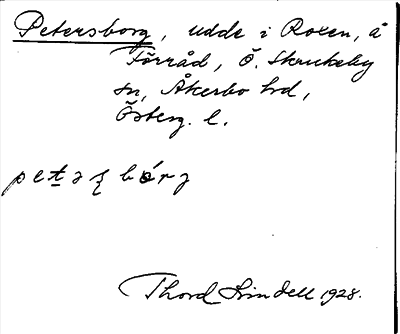 Petersborg, udde i Roxen, å
Förråd, Ö. Skrukeby
sn, Åkerbo hd,
Österg. l.
Thord Lindell 1928.